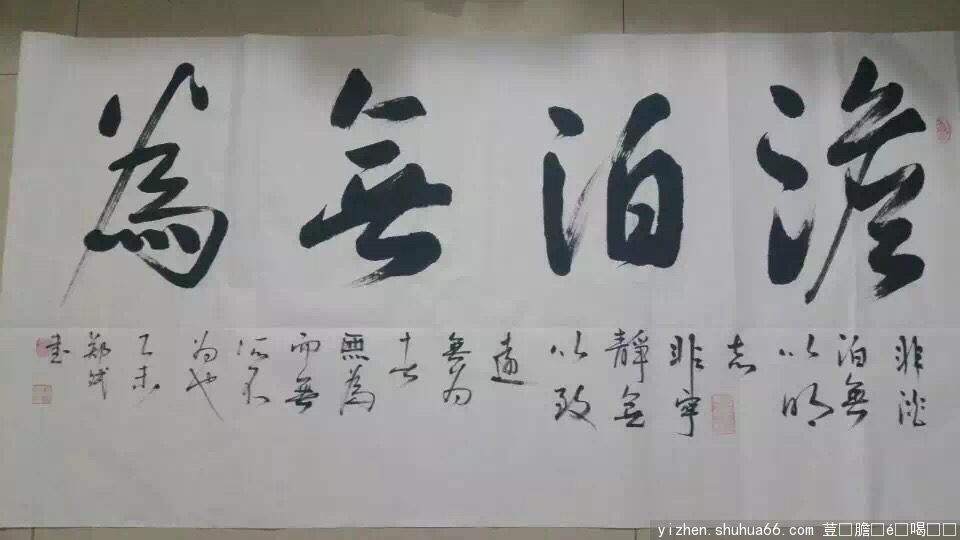 澹泊無為
非澹
泊無
以明
志
非寧
靜無
以致
遠
無为
者
無為
而無
所不
为也
乙未
郑斌
书
yizhen.shuhua66.com